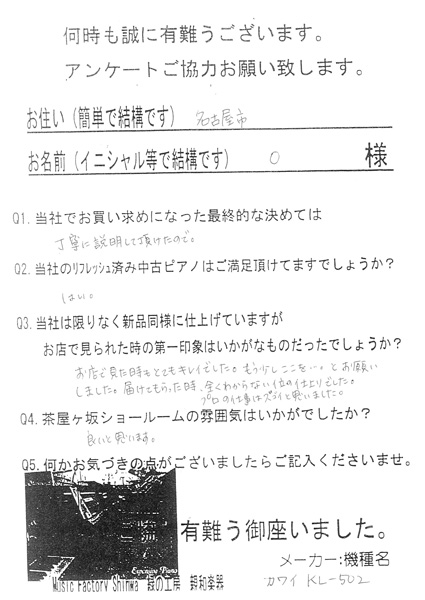 何時も誠に有難うございます。
アンケートご協力お願い致します。
お住い（簡単で結構です） 名古屋市
お名前（イニシャル等で結構です） O 様
Q1.当社でお買い求めになった最終的な決めては
丁寧に説明して頂けたので。
Q2.当社のリフレッシュ済み中古ピアノはご満足頂けてますでしょうか？
はい。
Q3.当社は限りなく新品同様に仕上げていますが
お店で見られた時の第一印象はいかがなものだったでしょうか？
お店で見た時もとてもキレイでした。もう少しここを…。とお願い
しました。届けてもらった時、全くわからない位の仕上りでした。
プロの仕事はスゴイと思いました。
Q4.茶屋ヶ坂ショールームの雰囲気はいかがでしたか？
良いと思います。
Q5.何かお気づきの点がございましたらご記入くださいませ。
有難う御座いました。
Expensive Piano
メーカー:機種名
Music Factory Shinwa 親和楽器
カワイ KL-502